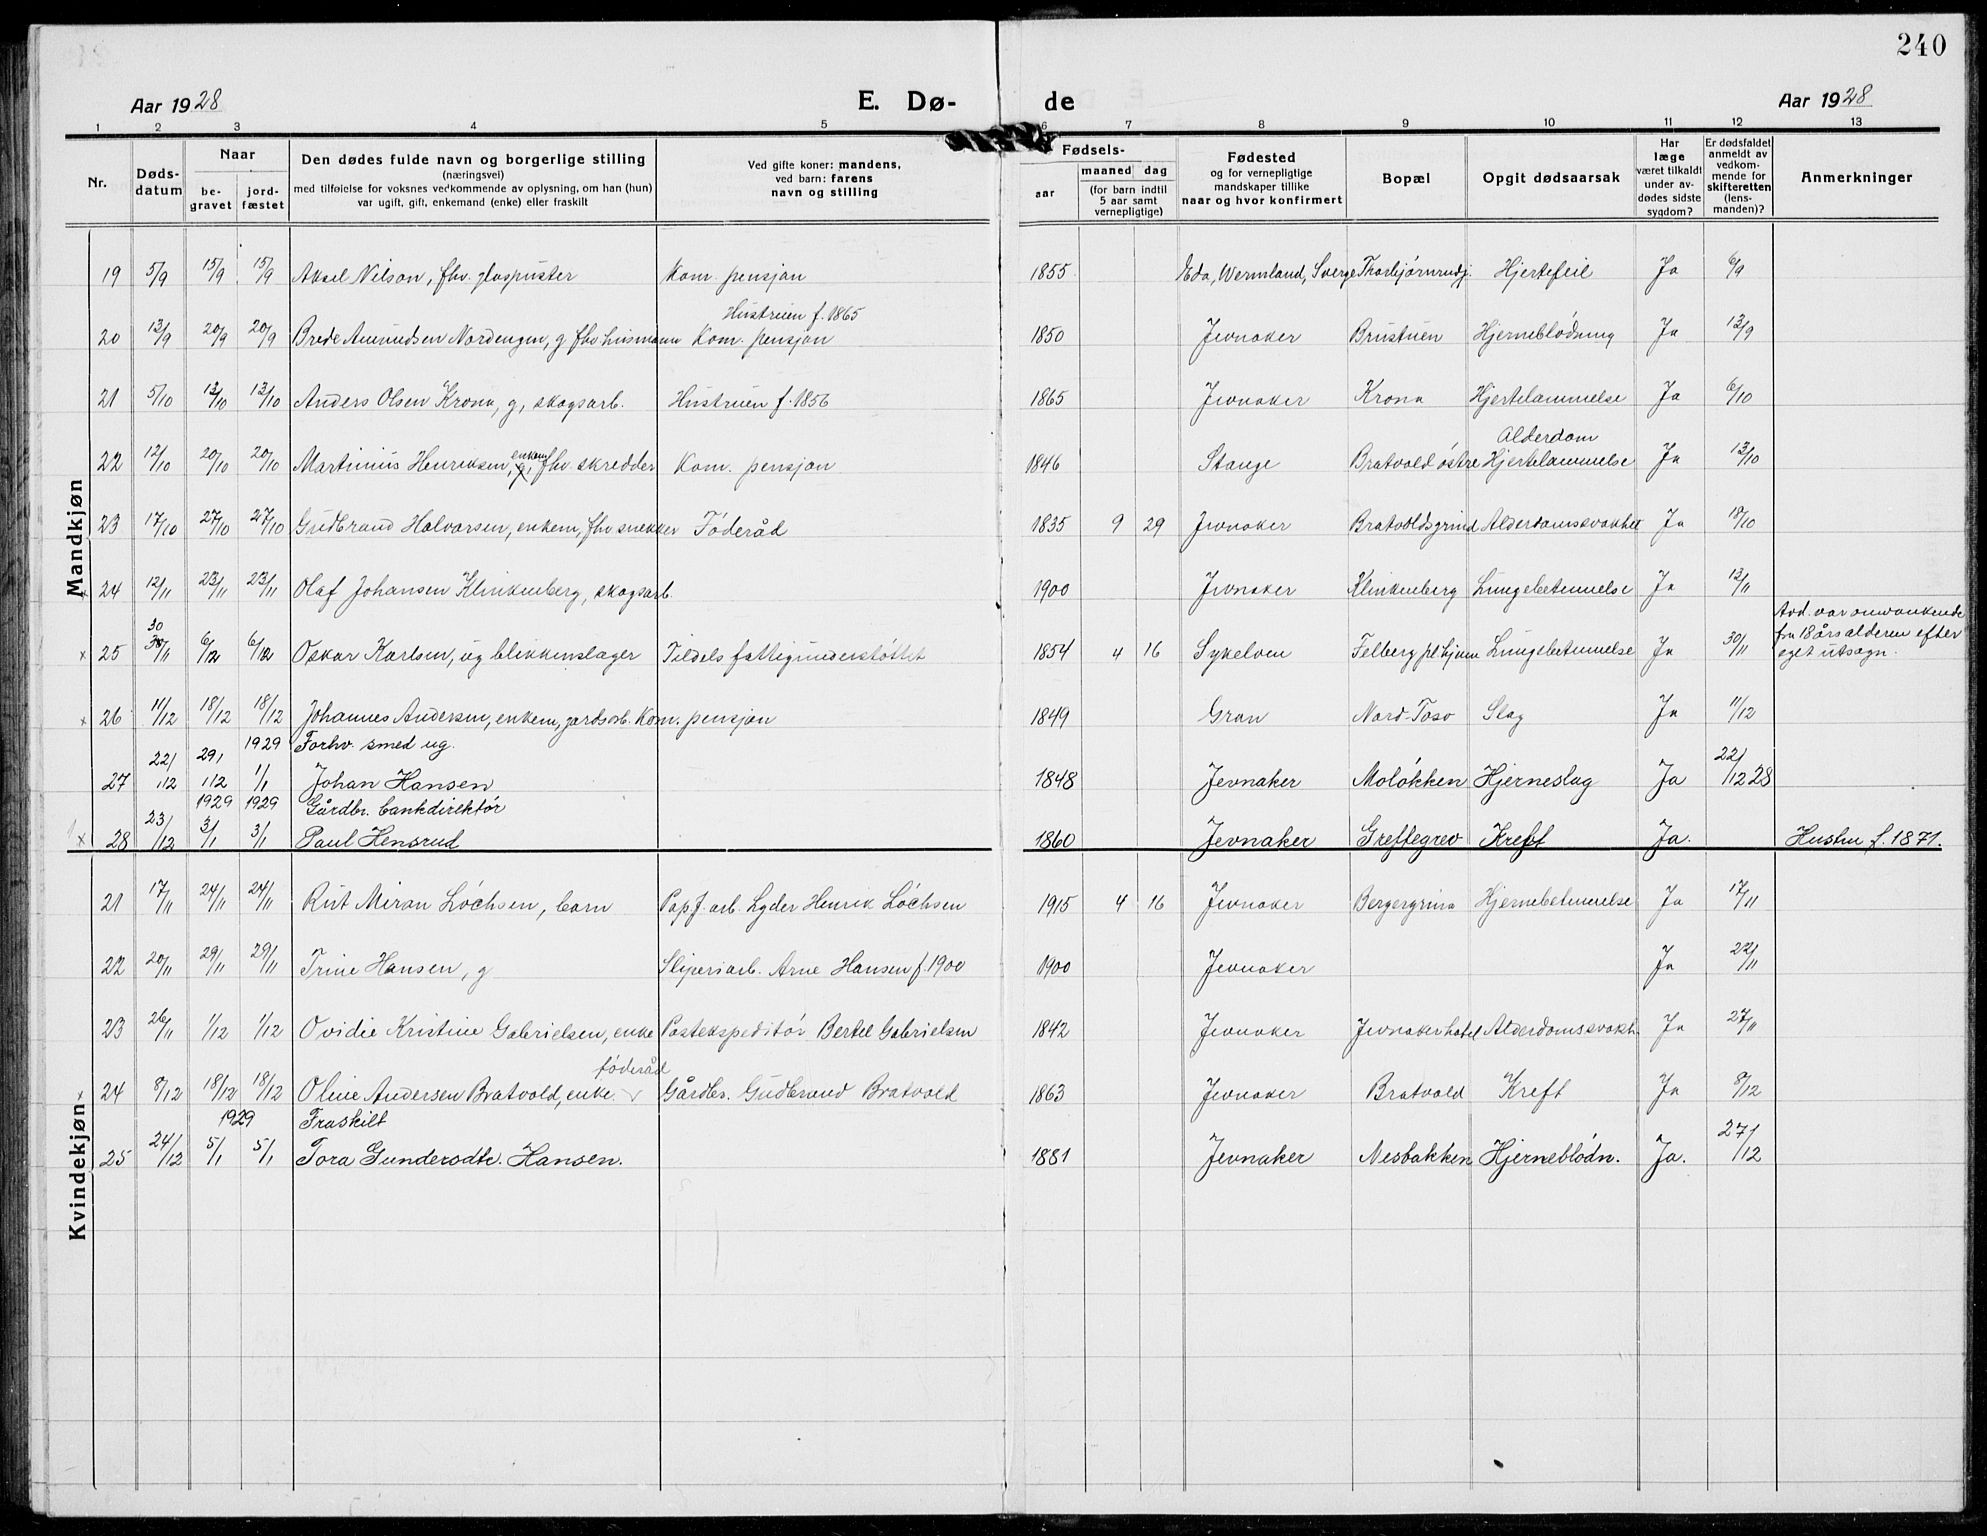 240
Aar 1928 E. Dø- de Aar 1928
1 2 3 4 5 6 7 8 9 10 11 12 13
Nr.
Døds-datum
Naar
be-gravet
jord-fæstet
Den dødes fulde navn og borgerlige stilling
(næringsvei)
med tilføielse for voksnes vedkommende av oplysning, om han (hun)
var ugift, gift, enkemand (enke) eller fraskilt
Ved gifte koner: mandens,
ved barn: farens
navn og stilling
Fødsels-
aar
maaned dag
(for barn indtil
5 aar samt
vernepligtige)
Fødested
og for vernepligtige
mandskaper tillike
naar og hvor konfirmert
Bopæl
Opgit dødsaarsak
Har
læge
været tilkaldt
under av-
dødes sidste
sygdom?
Er dødsfaldet
anmeldt av
vedkom-
mende for
skifteretten
(lens-
manden)?
Anmerkninger
Mandkjøn
19 5/9 15/9 15/9 Aksel Nilson, fhv. glaspuster Kom. pensjon 1855 Eda, Wermland, Sverge Thorbjørnrudj. Hjertefeil Ja 6/9
Hustruen f. 1865
20 13/9 20/9 20/9 Brede Amundsen Nordengen, g fhv. husmann Kom. pensjon 1850 Jevnaker Brustuen Hjerneblödning Ja 13/9
21 5/10 13/10 13/10 Anders Olsen Krona, g, skogsarb. Hustruen f. 1856 1865 Jevnaker Krona Hjertelammelse Ja 6/10
enkem Alderdom
22 12/10 20/10 20/10 Martinius Henriksen, g, fhv. skredder Kom. pensjon 1846 Stange Bratvold östre Hjertelammelse Ja 13/10
23 17/10 27/10 27/10 Gudbrand Halvorsen, enkem, fhv snekker Föderåd 1835 9 29 Jevnaker Bratvoldsgrind Alderdomssvakhet Ja 18/10
x 24 12/11 23/11 23/11 Olaf Johansen Klinkenberg, skogsarb. 1900 Jevnaker Klinkenberg Lungebetennelse Ja 13/11
30 Avd. var omvankende
fra 18 års alderen efter
x 25 30/11 6/12 6/12 Oskar Karlsen, ug blikkenslager Tildels fattigunderstöttet 1854 4 16 Sykelven Felberg pl.hjem Lungebetennelse Ja 30/11 eget utsagn.
x 26 11/12 18/12 18/12 Johannes Andersen, enkem, jordsarb. Kom. pensjon 1849 Gran Nord-Toso Slag Ja 11/12
1929 Forhv. smed ug.
27 22/12 29/12 1/1 Johan Hansen 1848 Jevnaker Molökken Hjerneslag Ja 22/12 28
1929 1929 Gårdbr. bankdirektör
x 28 23/12 3/1 3/1 Paul Hensrud 1860 Jevnaker Greftegrev Kreft Ja. Hustru f. 1871.
Kvindekjøn
21 17/11 24/11 24/11 Rut Miran Löchsen, barn Papf. arb. Lyder Henrik Löchsen 1915 4 16 Jevnaker Bergergrina Hjernebetennelse Ja 17/11
22 20/11 29/11 29/11 Trine Hansen, g Sliperiarb. Arne Hansen f. 1900 1900 Jevnaker Ja 22/11
23 26/11 1/12 1/12 Ovidie Kristine Gabrielsen, enke Postekspeditör Bertel Gabrielsen 1842 Jevnaker Jevnaker hotel Alderdomssvakh. Ja 27/11
föderåd
x 24 8/12 18/12 18/12 Oline Andersen Bratvold, enke Gårdbr. Gudbrand Bratvold 1863 Jevnaker Bratvold Kreft Ja 8/12
1929 Fraskilt
25 24/12 5/1 5/1 Tora Gundersdtr. Hansen. 1881 Jevnaker Nesbakken Hjerneblödn. Ja. 27/12